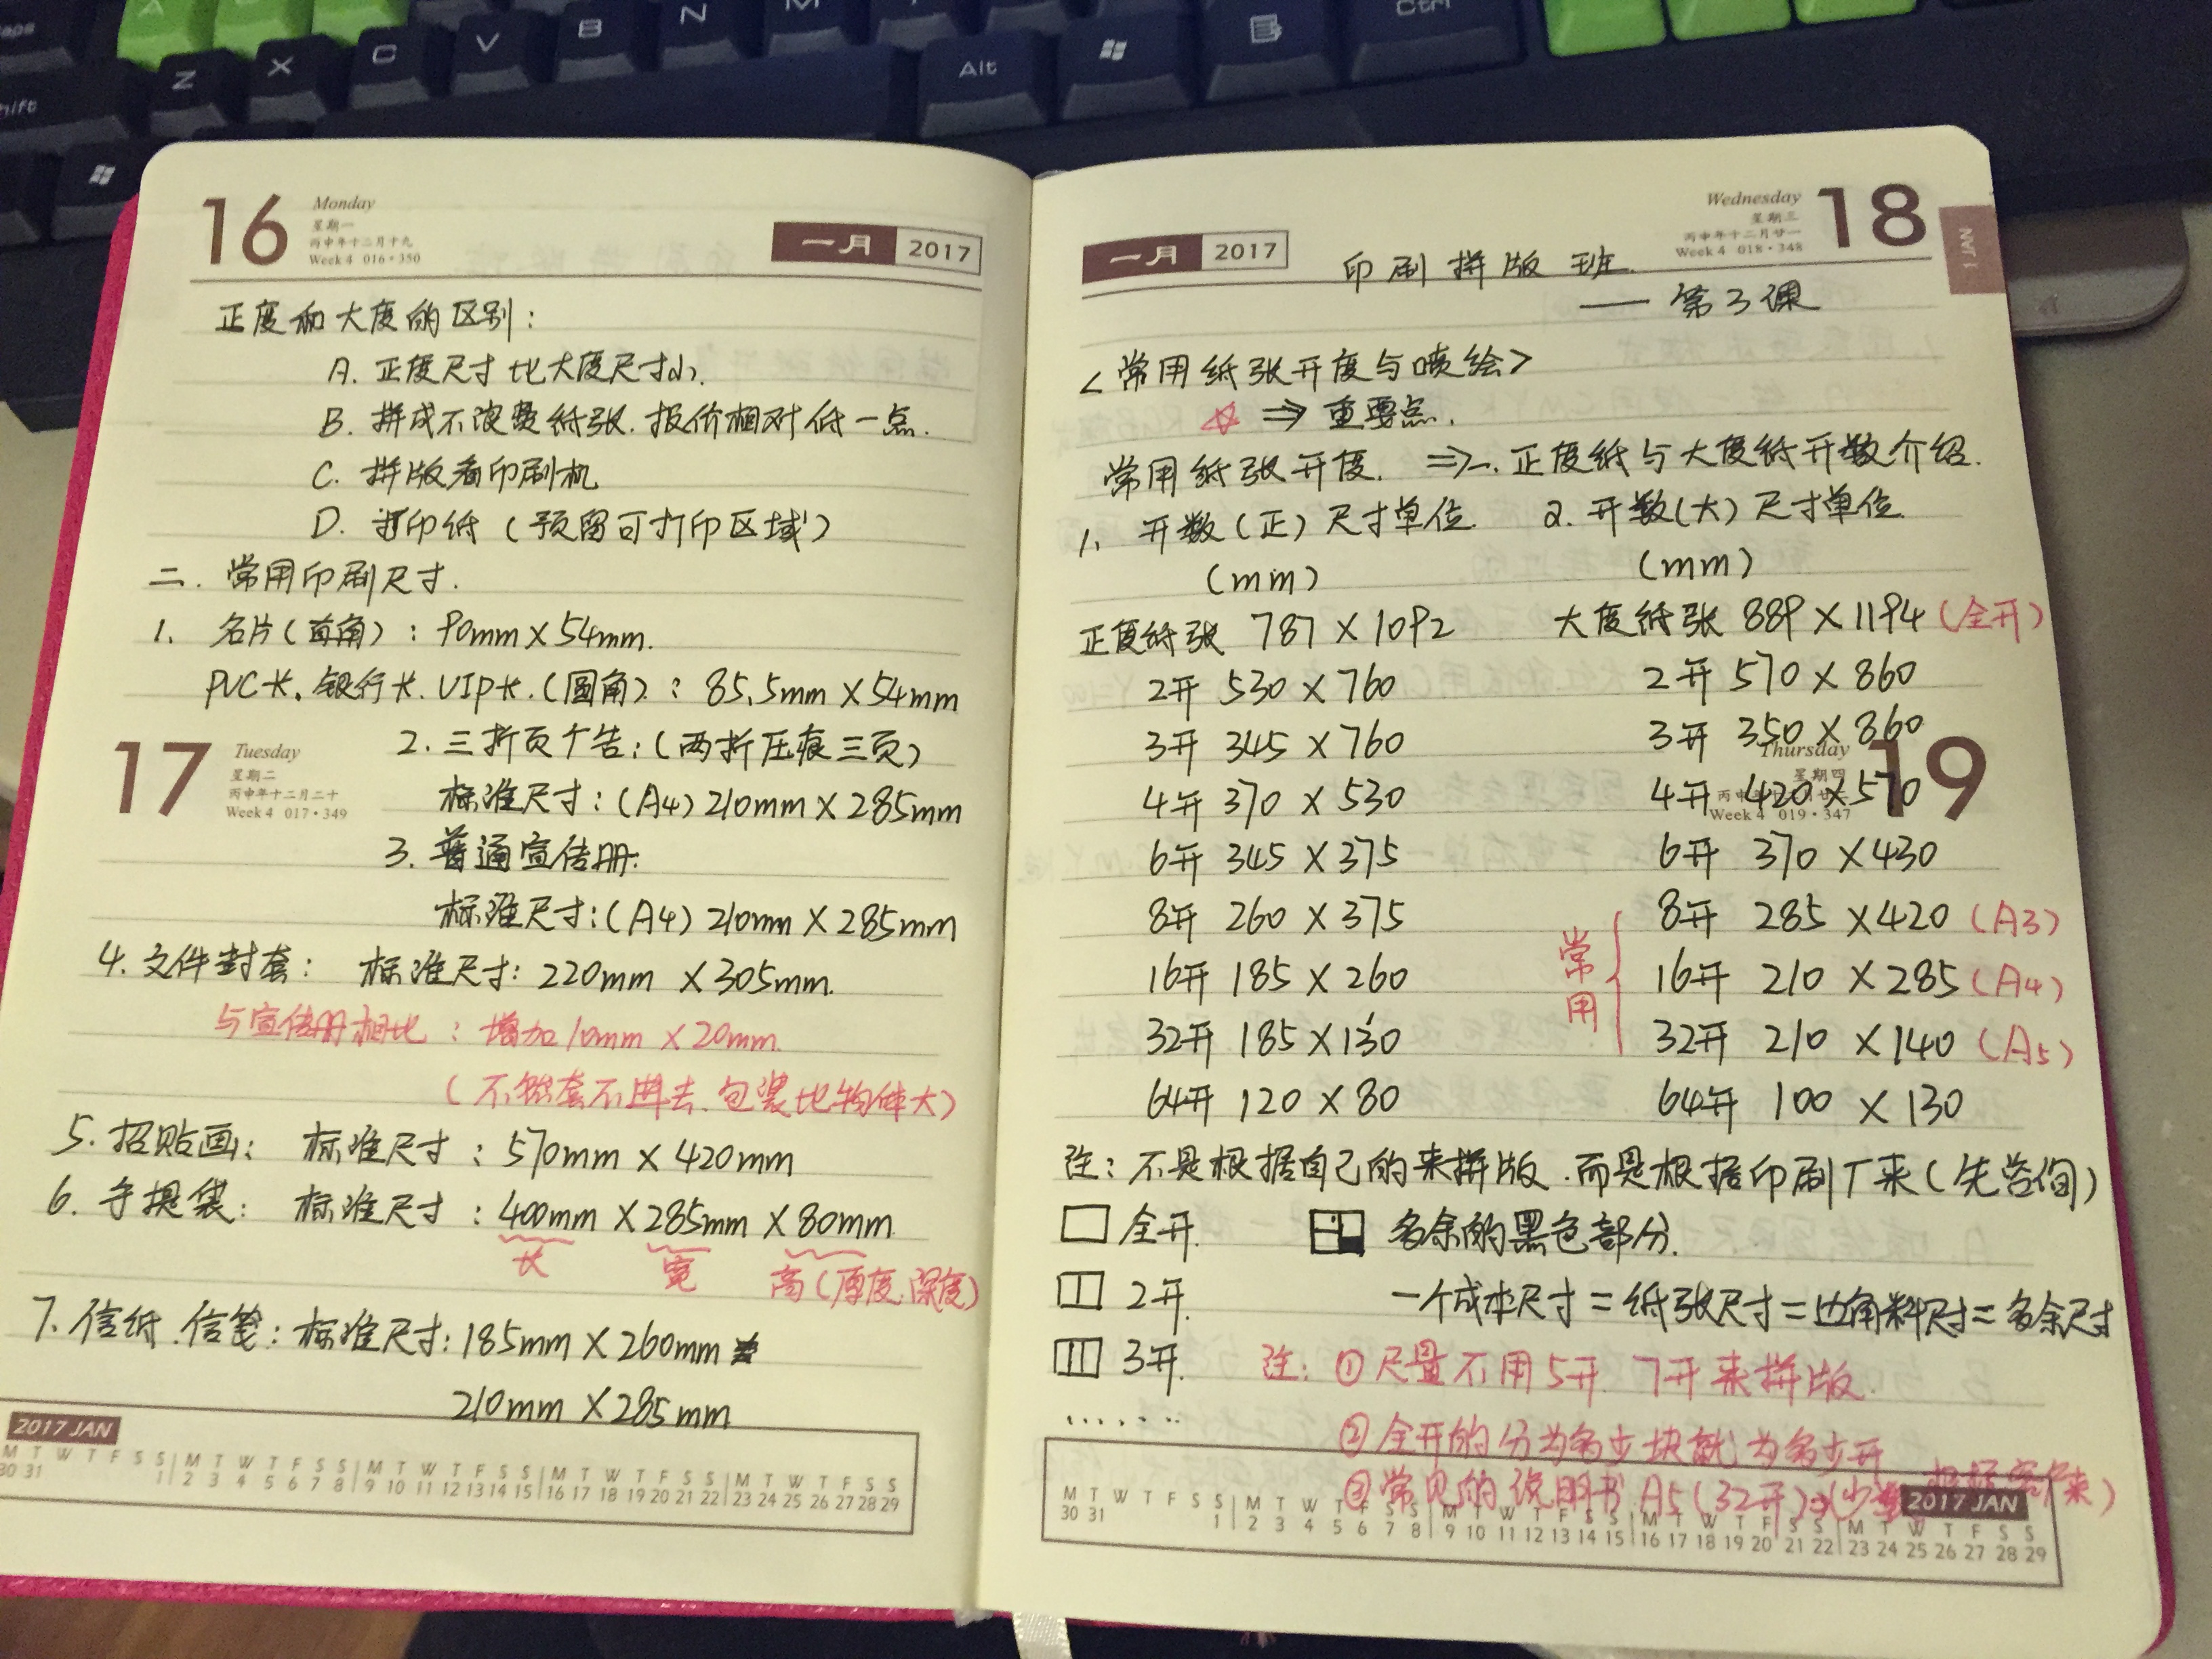 Caps
Shift
Z
X
C
V
B
N
M
Alt
Ctrl
16
Monday
星期一
丙申年十二月十九
Week 4 016·350
一月 2017
正度和大度的区别：
A. 正度尺寸比大度尺寸小.
B. 拼成不浪费纸张.报价相对低一点.
C. 拼版看印刷机
D. 打印纸（预留可打印区域）
二. 常用印刷尺寸.
1. 名片（直角）：90mm×54mm.
PVC卡.银行卡.VIP卡.（圆角）：85.5mm×54mm
17
Tuesday
星期二
丙申年十二月二十
Week 4 017·349
2. 三折页广告：（两折压痕三页）
标准尺寸：（A4）210mm×285mm
3. 普通宣传册：
标准尺寸：（A4）210mm×285mm
4. 文件封套： 标准尺寸：220mm×305mm.
与宣传册相比：增加10mm×20mm.
（不然套不进去.包装比物体大）
5. 招贴画： 标准尺寸：570mm×420mm
6. 手提袋： 标准尺寸：400mm×285mm×80mm
长 宽 高（厚度.深度）
7. 信纸.信笺：标准尺寸：185mm×260mm
210mm×285mm
2017 JAN
M T W T F S S M T W T F S S M T W T F S S M T W T F S S M T W T F S S
30 31 1 2 3 4 5 6 7 8 9 10 11 12 13 14 15 16 17 18 19 20 21 22 23 24 25 26 27 28 29
一月 2017
Wednesday
星期三
丙申年十二月廿一
Week 4 018·348
18
1 JAN
印刷拼版班.
—— 第3课
<常用纸张开度与喷绘>
☆ ⇒ 重要点.
常用纸张开度. ⇒一. 正度纸与大度纸开数介绍.
1. 开数（正）尺寸单位 2. 开数（大）尺寸单位
（mm） （mm）
正度纸张 787×1092 大度纸张 889×1194（全开）
2开 530×760 2开 570×860
3开 345×760 3开 350×860
Thursday
星期四
Week 4 019·347
19
4开 370×530 4开 420×570
6开 345×375 6开 370×430
8开 260×375 8开 285×420（A3）
常用
16开 185×260 16开 210×285（A4）
32开 185×130 32开 210×140（A5）
64开 120×80 64开 100×130
注：不是根据自己的来拼版.而是根据印刷厂来（先咨询）
全开. 多余的黑色部分.
2开. 一个成本尺寸=纸张尺寸=边角料尺寸=多余尺寸
3开. 注：①尽量不用5开 7开来拼版.
......
②全开的分为多少块就为多少开
③常见的说明书A5（32开）
2017 JAN
M T W T F S S M T W T F S S M T W T F S S M T W T F S S M T W T F S S
30 31 1 2 3 4 5 6 7 8 9 10 11 12 13 14 15 16 17 18 19 20 21 22 23 24 25 26 27 28 29